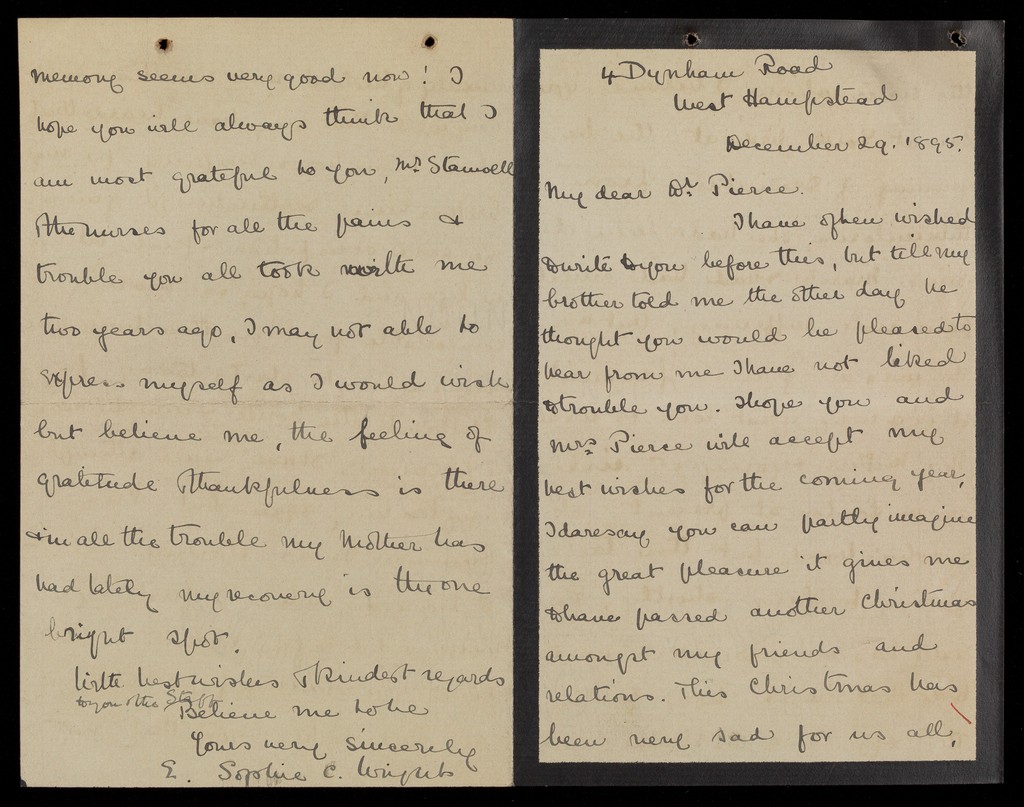 4 Dynham Road
West Hampstead
December 29. 1895.
My dear Dr. Pierce.
I have often wished
to write to you before this, but till my
brother told me the other day he
thought you would be pleased to
hear from me I have not liked
to trouble you. I hope you and
Mrs. Pierce will accept my
best wishes for the coming year,
I daresay you can partly imagine
the great pleasure it gives me
to have passed another Christmas
amongst my friends and
relations. This Christmas has
been very sad for us all,
memory seems very good now! I
hope you will always think that I
am most grateful to you, Mr.
& the nurses for all the pains &
trouble you all took with me
two years ago. I may not able to
express myself as I would wish
but believe me, the feeling of
gratitude & thankfulness is there
& in all the trouble my Mother has
had lately my recovery is the one
bright spot.
With best wishes & kindest regards
to you & the Staff
Believe me to be
Yours very sincerely
E. Sophie C. Wright